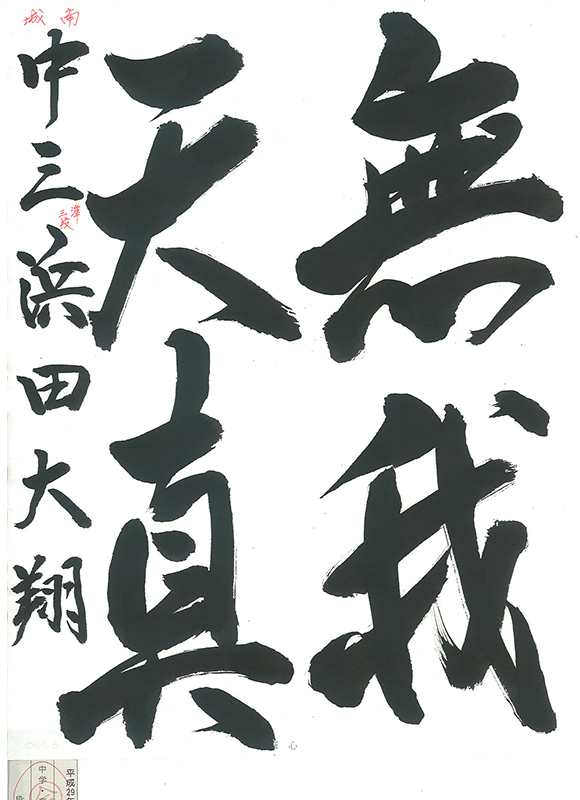 無我
天真
南城
中三 浜田大翔
準三段
心
平成29年
中学
段